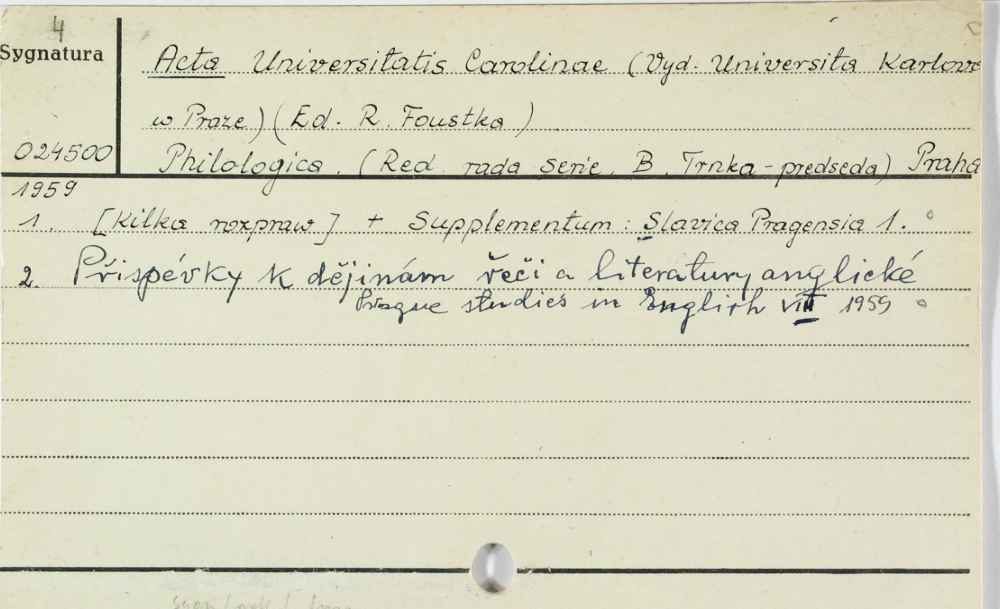 4
Sygnatura
Acta Universitatis Carolinae (Vyd. Universita Karlova
w Praze) (Ed. R. Foustka)
024500
Philologica. (Red. rada serie. B. Trnka - predseda) Praha
1959
1. [Kilka rozpraw] + Supplementum: Slavica Pragensia 1.
2. Přispévky k dějinám řeči a literatury anglické
Prague studies in English VIII 1959